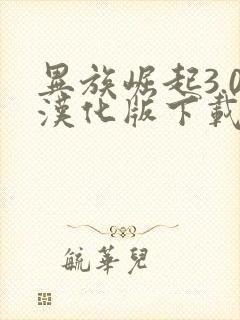 異族崛起3.0
漢化版下載
毓華兒